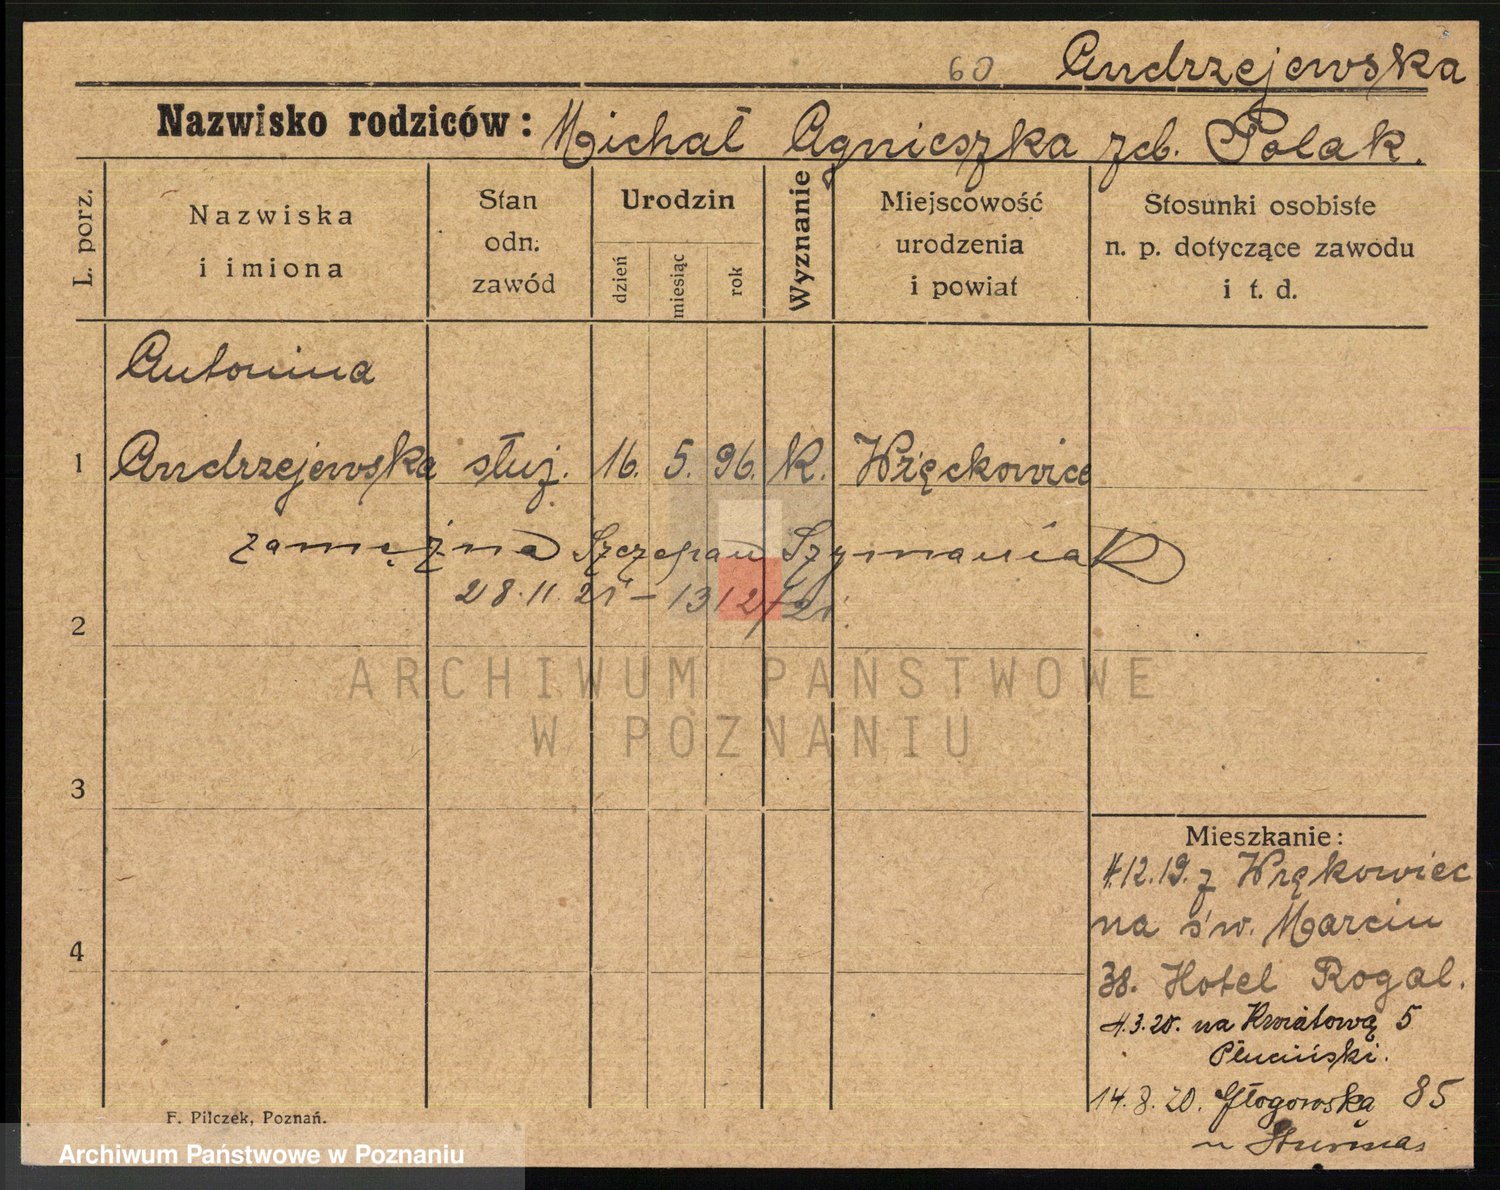 60 Andrzejewska
Nazwisko rodziców: Michał Agnieszka zcb. Polak.
L. porz.
Nazwiska
i imiona
Stan
odn.
zawód
Urodzin
dzień
miesiąc
rok
Wyznanie
Miejscowość
urodzenia
i powiat
Stosunki osobiste
n. p. dotyczące zawodu
i t. d.
Antonina
1 Andrzejewska służ. 16. 5. 96. K. Więckowice
zamężna Szczepan Szymaniak
28.11.21 – 1312/21
2
ARCHIWUM PAŃSTWOWE
W POZNANIU
3
Mieszkanie:
4.12.19. z Więkowiec
na św. Marcin
4
38. Hotel Rogal.
4.3.20. na Kwiatową 5
Pluciński.
14.8.20. Głogowska 85
u
F. Pilczek, Poznań.
Archiwum Państwowe w Poznaniu